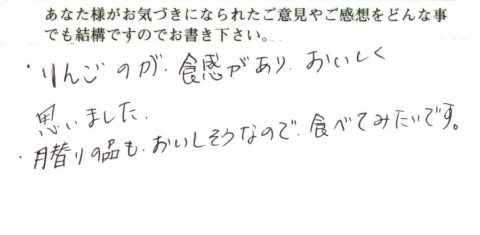 あなた様がお気づきになられたご意見やご感想をどんな事
でも結構ですのでお書き下さい。
・りんごのが、食感があり、おいしく
思いました。
・月替りの品も、おいしそうなので、食べてみたいです。